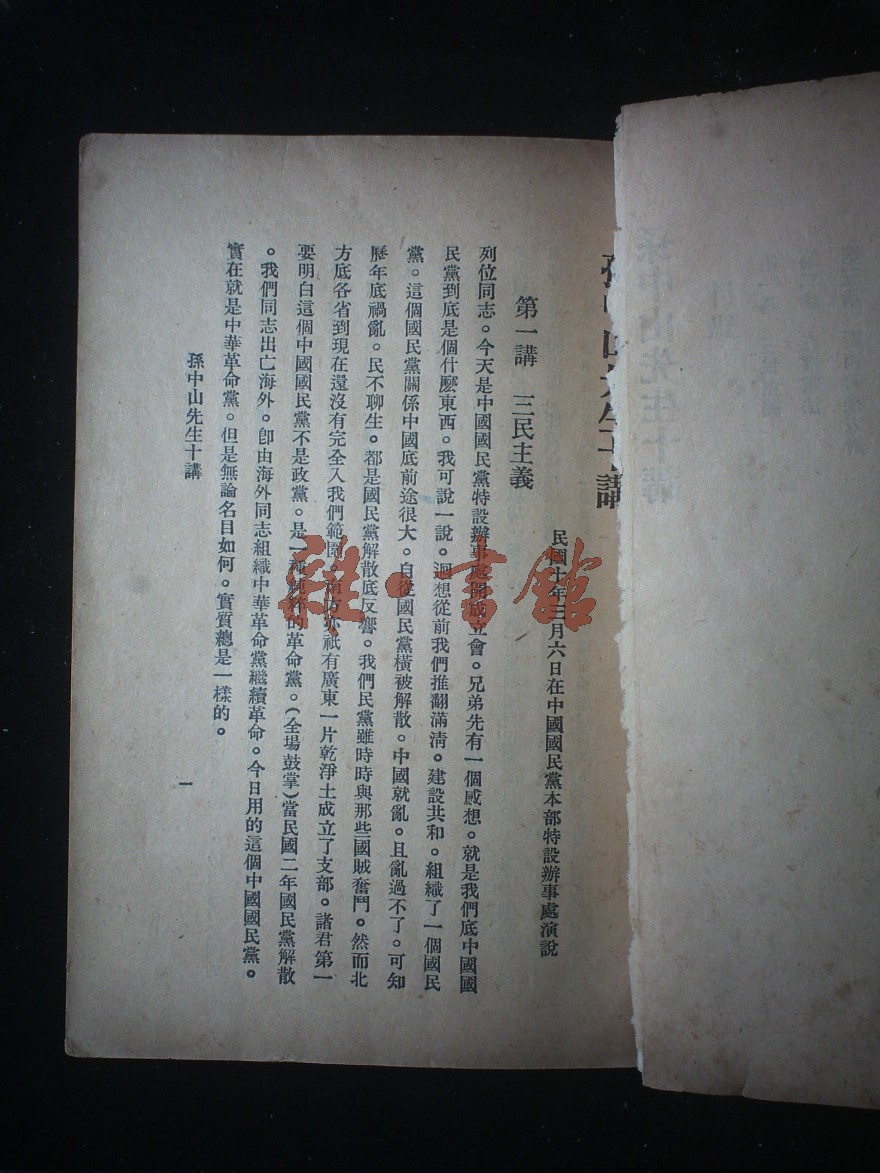 孫中山先生十講
第一講　三民主義
民國十年三月六日在中國國民黨本部特設辦事處演說
列位同志。今天是中國國民黨特設辦事處開成立會。兄弟先有一個感想。就是我們底中國國
民黨到底是個什麼東西。我可說一說。迴想從前我們推翻滿淸。建設共和。組織了一個國民
黨。這個國民黨關係中國底前途很大。自從國民黨橫被解散。中國就亂。且亂過不了。可知
歷年底禍亂。民不聊生。都是國民黨解散底反響。我們民黨雖時時與那些國賊奮鬥。然而北
方底各省到現在還沒有完全入我們範圍。南方亦祇有廣東一片乾淨土成立了支部。諸君第一
要明白這個中國國民黨不是政黨。是一種純粹的革命黨。(全場鼓掌)當民國二年國民黨解散
。我們同志出亡海外。卽由海外同志組織中華革命黨繼續革命。今日用的這個中國國民黨。
實在就是中華革命黨。但是無論名目如何。實質總是一樣的。
孫中山先生十講
一
雜·書館
孫中山先生十講